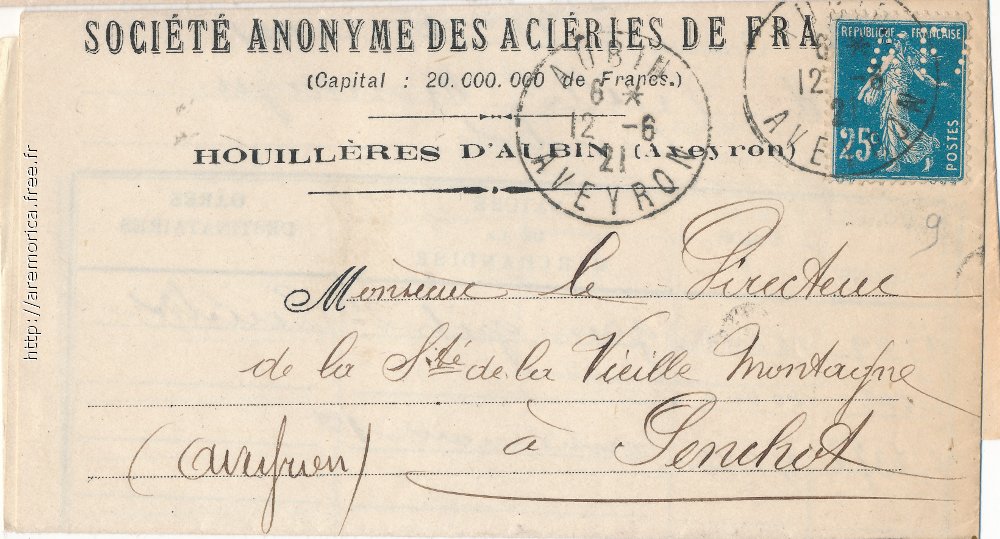 SOCIÉTÉ ANONYME DES ACIÉRIES DE FRA
(Capital : 20.000.000 de Francs.)
HOUILLÈRES D'AUBIN (Aveyron)
AUBIN
6 *
12 -6
21
AVEYRON
REPUBLIQUE FRANÇAISE
25c
POSTES
9
Monsieur le Directeur
de la Sté de la Vieille Montagne
à Penchot
(aveyron)
http://aremorica.free.fr
GARES
DESTINATAIRES